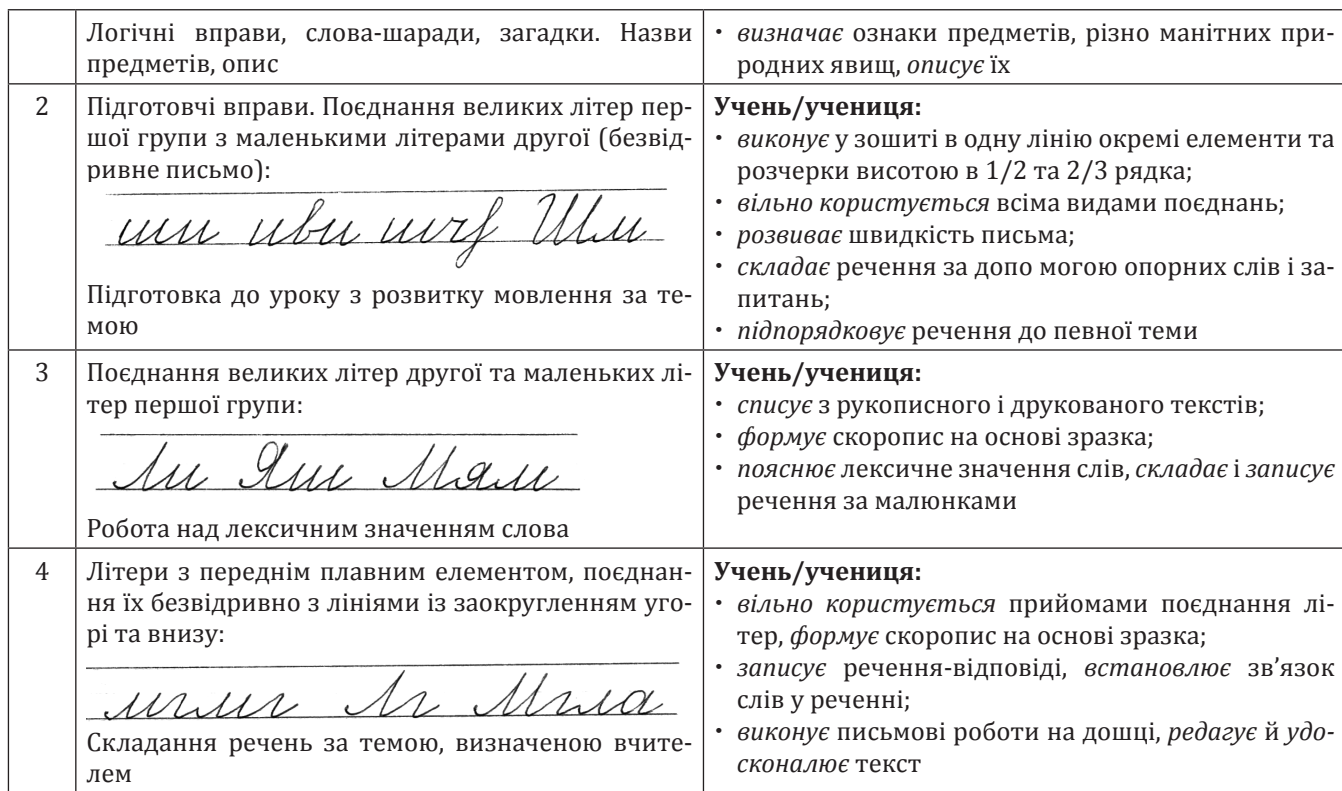 Логічні вправи, слова-шаради, загадки. Назви
предметів, опис
• визначає ознаки предметів, різно манітних при-
родних явищ, описує їх
2
Підготовчі вправи. Поєднання великих літер пер-
шої групи з маленькими літерами другої (безвід-
ривне письмо):
Підготовка до уроку з розвитку мовлення за те-
мою
Учень/учениця:
• виконує у зошиті в одну лінію окремі елементи та
розчерки висотою в 1/2 та 2/3 рядка;
• вільно користується всіма видами поєднань;
• розвиває швидкість письма;
• складає речення за допо могою опорних слів і за-
питань;
• підпорядковує речення до певної теми
3
Поєднання великих літер другої та маленьких лі-
тер першої групи:
Ли Яш Мям
Робота над лексичним значенням слова
Учень/учениця:
• списує з рукописного і друкованого текстів;
• формує скоропис на основі зразка;
• пояснює лексичне значення слів, складає і записує
речення за малюнками
4
Літери з переднім плавним елементом, поєднан-
ня їх безвідривно з лініями із заокругленням уго-
рі та внизу:
мгмг Лг Мгла
Складання речень за темою, визначеною вчите-
лем
Учень/учениця:
• вільно користується прийомами поєднання лі-
тер, формує скоропис на основі зразка;
• записує речення-відповіді, встановлює зв'язок
слів у реченні;
• виконує письмові роботи на дошці, редагує й удо-
сконалює текст